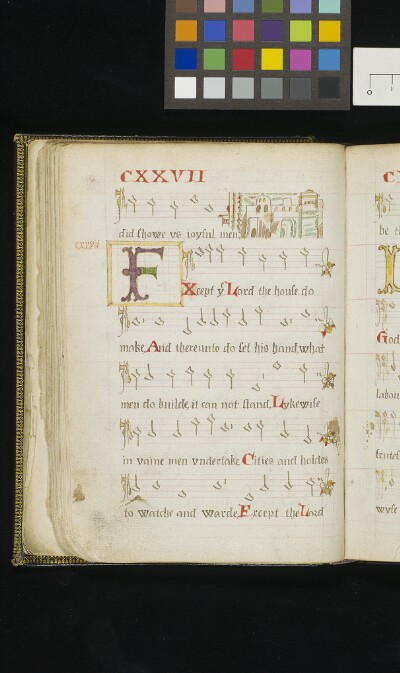 CXXVII
did showe vs ioyful men.
EXcept yͤ Lord the house do
make, And thereunto do set his hand, what
men do builde, it can not stand. Lykewise
in vaine men vndertake Cities and holdes
to watche and warde, Except the Lord
be
God
labour
wyse